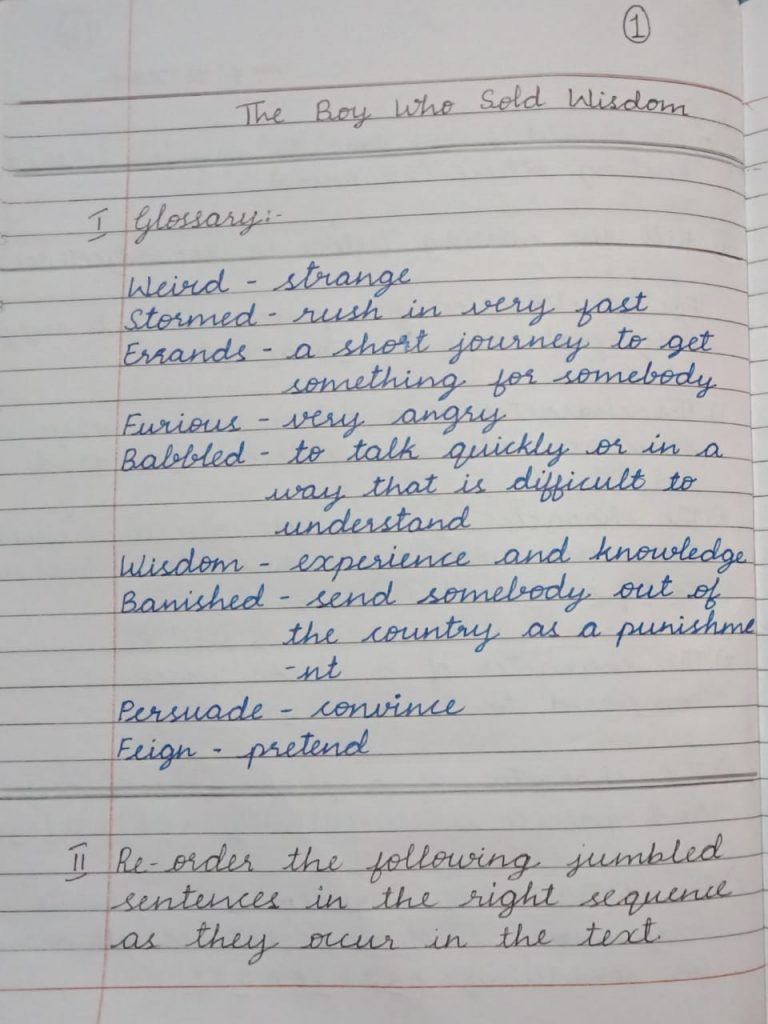 1
The Boy Who Sold Wisdom
I Glossary:-
Weird - strange
Stormed - rush in very fast
Errands - a short journey to get
something for somebody
Furious - very angry
Babbled - to talk quickly or in a
way that is difficult to
understand
Wisdom - experience and knowledge
Banished - send somebody out of
the country as a punishme
-nt
Persuade - convince
Feign - pretend
II Re-order the following jumbled
sentences in the right sequence
as they occur in the text